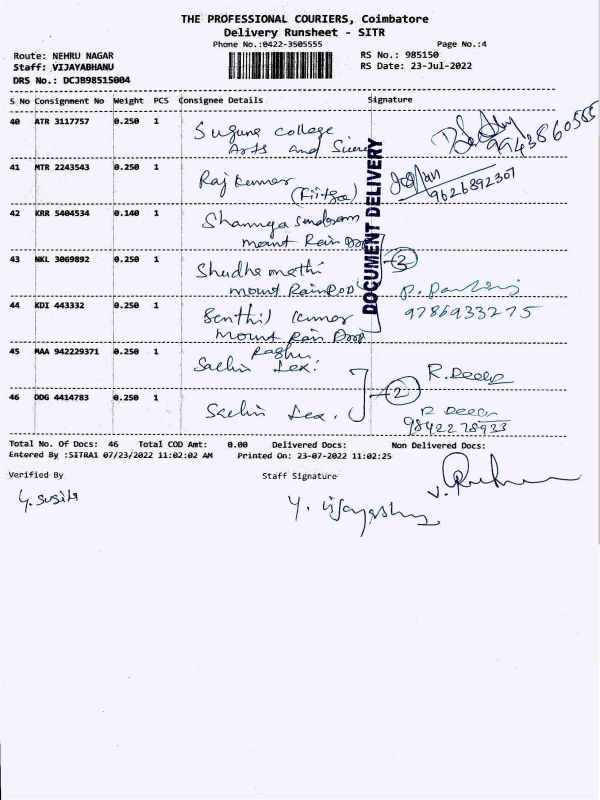 THE PROFESSIONAL COURIERS, Coimbatore
Delivery Runsheet - SITR
Phone No.:0422-3505555 Page No.:4
Route: NEHRU NAGAR RS No.: 985150
Staff: VIJAYABHANU RS Date: 23-Jul-2022
DRS No.: DCJB98515004
S No Consignment No Weight PCS Consignee Details Signature
40 ATR 3117757 0.250 1 Suguna College
Arts and
9943860585
41 MTR 2243543 0.250 1 Raj Kumar
9626892307
42 KRR 5404534 0.140 1
mount Rain Drop
43 NKL 3069892 0.250 1 3
mount Rain Drop
44 KDI 443332 0.250 1 Senthil Kumar 9786933275
Mount Rain Drop
Raghu
45 MAA 942229371 0.250 1 R. Deeep
2
46 DDG 4414783 0.250 1
9842278933
DOCUMENT DELIVERY
Total No. Of Docs: 46 Total COD Amt: 0.00 Delivered Docs: Non Delivered Docs:
Entered By :SITRA1 07/23/2022 11:02:02 AM Printed On: 23-07-2022 11:02:25
Verified By Staff Signature